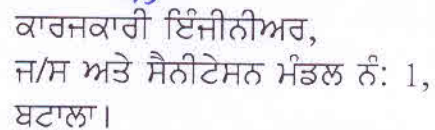 ਕਾਰਜਕਾਰੀ ਇੰਜੀਨੀਅਰ,
ਜ/ਸ ਅਤੇ ਸੈਨੀਟੇਸਨ ਮੰਡਲ ਨੰ: 1,
ਬਟਾਲਾ।